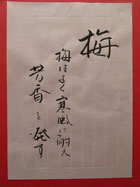 梅
梅は多く寒風に耐え
芳香を発す